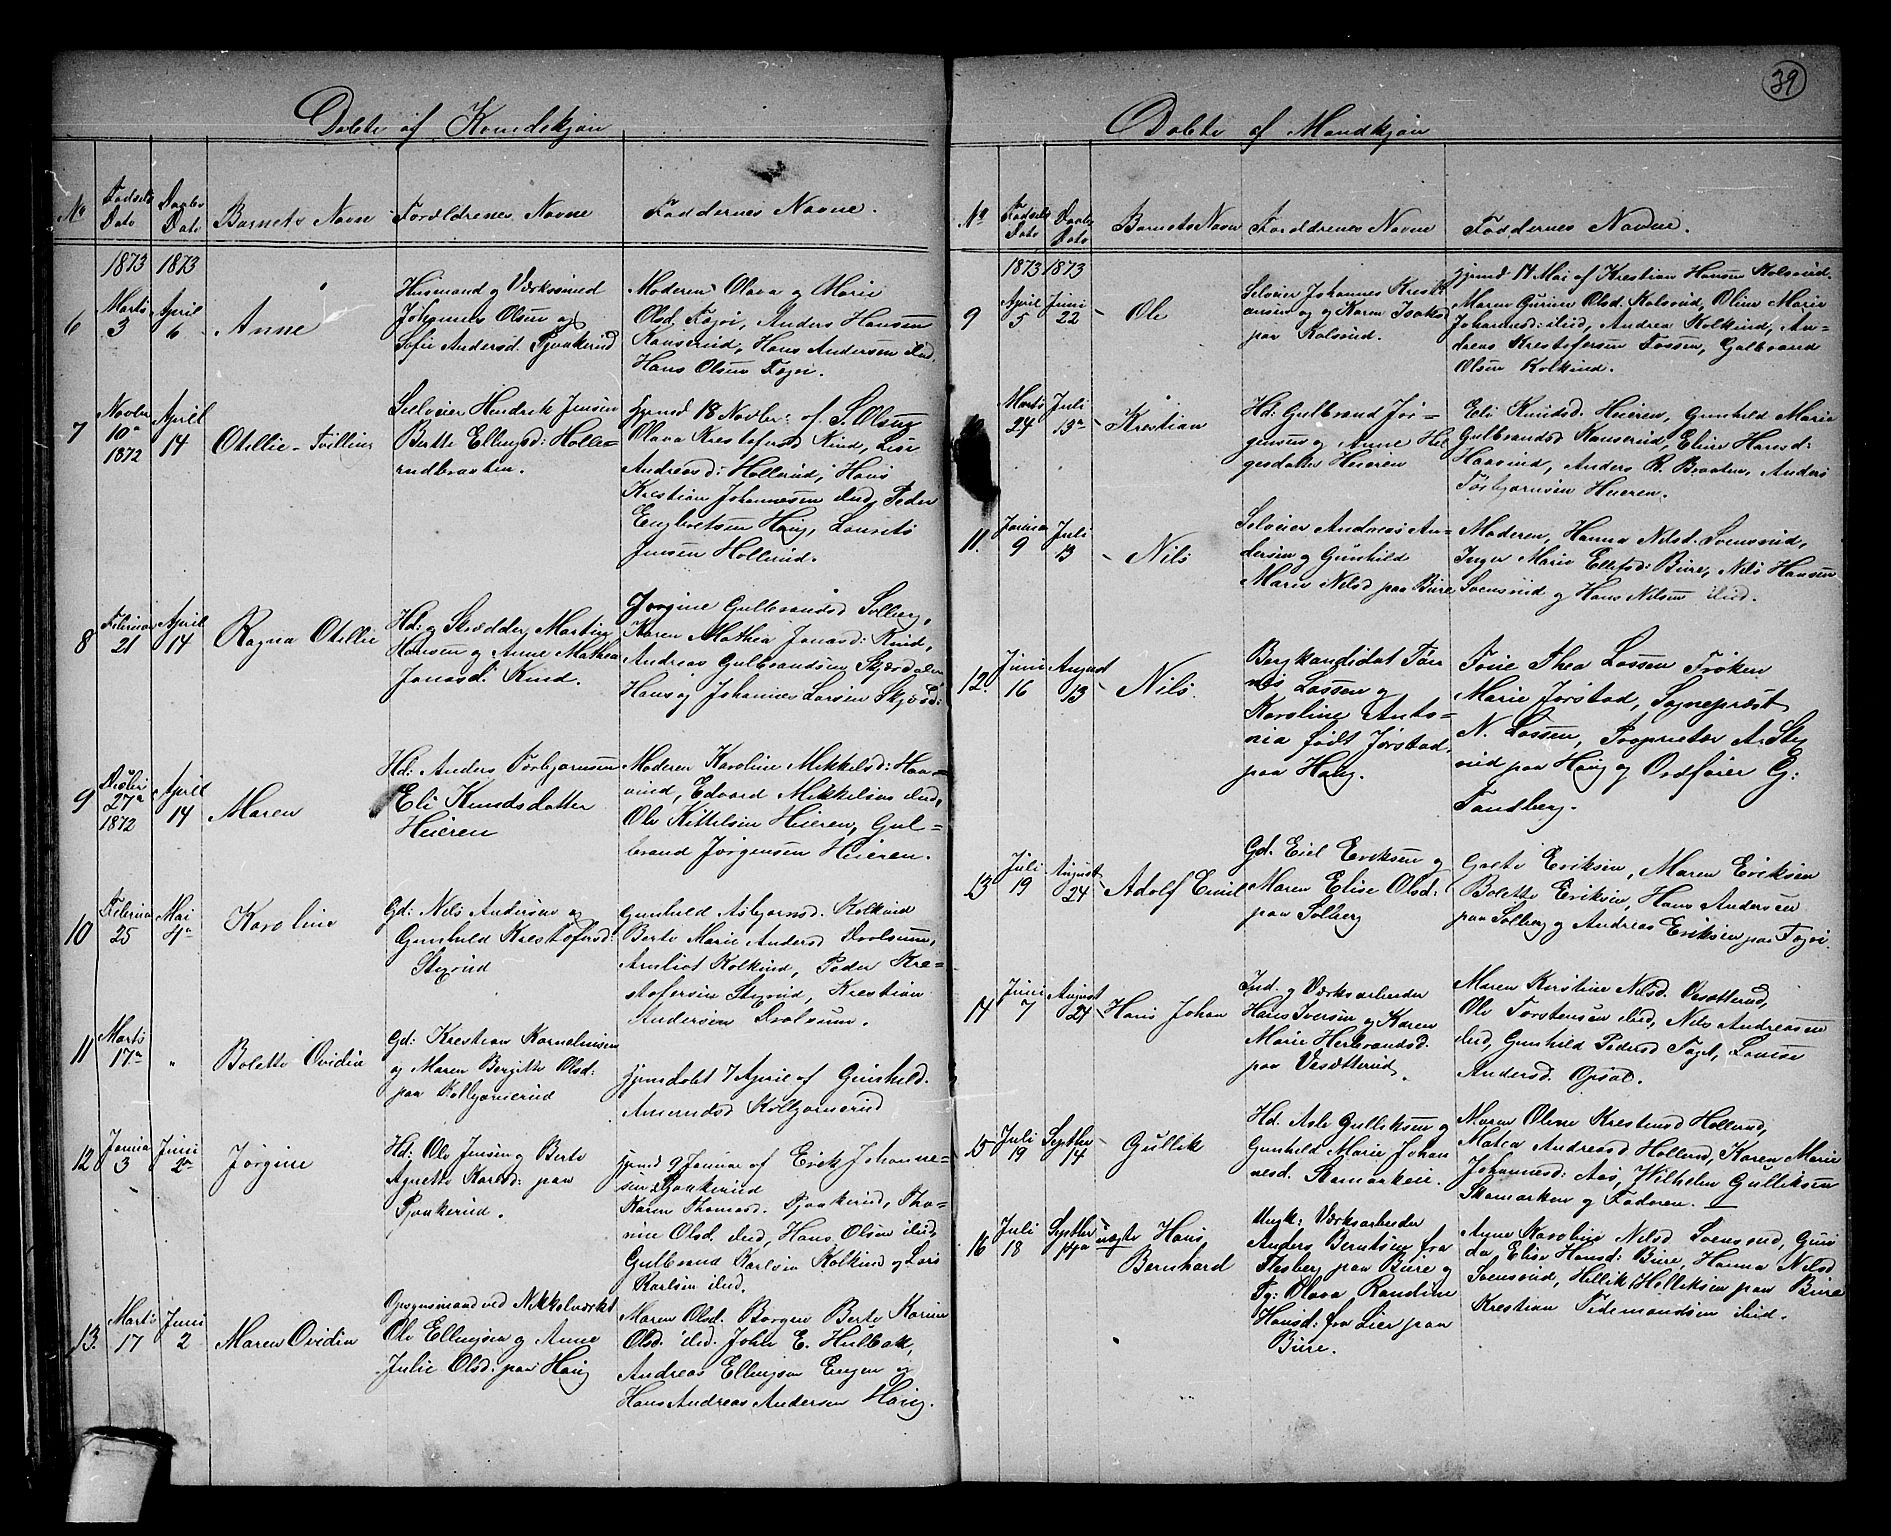 Døbte af Kvindekjøn
No
Fødsels
Dato
Daabs
Dato
Barnets Navn
Forældrenes Navne
Faddernes Navne.
1873 1873
6
Marts
3
April
6
Anne
Husmand og Værksmed
Johannes Olsen og
Sofie Andersd. Tjaakerud
Moderen Olava og Marie
Olsd. Fagøi, Anders Hansen
Kanserud, Hans Andersen ibid,
Hans Olsen Fagøi.
7
Novbr
10de
1872
April
14
Otillie - Tvilling
Selveier Hendrik Jensen
Berthe Ellingsd: Holle-
rudbraaten.
hjemd 18 Novbr: af S. Olsen
Olava Krestofersd Rind, Lise
Andreasd: Hollerud, Hans
Krestian Johannesen ibid, Peder
Engbretsen Haug, Laurets
Jensen Hollerud.
8
Februar
21
April
14
Ragna Otillie
Hd: og Skrædder Martin
Hansen og Anne Mathea
Jonasd: Rind.
Jørgine Gulbrandsd Solberg,
Karen Mathea Jonasd: Rind,
Andreas Gulbrandsen Skjærdalen
Hans og Johannes Larsen
9
Decbr
27de
1872
April
14
Maren
Hd: Anders Torbjørnsen
Eli Knudsdatter
Heieren
Moderen Karoline Mikkelsd: Haa-
vind, Edvard Mikkelsen ibid,
Ole Kittelsen Heieren, Gul-
brand Jørgensen Heieren.
10
Februar
25
Mai
4de
Karoline
Gd: Nils Andersen og
Gunhild Krestofersd:
Styrud
Gunhild Asbjørnsd. Kolkind
Berte Marie Andersd Drolsum,
Amliot Kolkind, Peder Kre-
stofersen Styrud, Krestian
Andersen Drolsum.
11
Marts
17de
"
Bolette Ovidia
Gd: Krestian Kornelinsen
og Maren Bergitte Olsd:
paa Kolbjørnerud
hjemdøbt 7 April af Gunhild.
Amundsd Kolbjørnerud
12
Januar
3
Juni
2de
Jørgine
Hd: Ole Jensen og Berte
Agnethe Karlsd: paa
Tjaakerud.
hjemd 9 Januar af Erick Johanne-
sen Tjaakerud
Karen Thomasd. Tjaakerud, Tho-
rine Olsd. ibid, Hans Olsen ibid,
Gulbrand Karlsen Kolkind og Lars
Karlsen ibid.
13.
Marts
17
Juni
2
Maren Ovidia
Opsynsmand ved Nikkelværket
Ole Ellingsen og Anne
Julie Olsd: paa Haug
Maren Olsd. Borgen Berte Karine
Olsd. ibid. John E. Hulbak,
Andreas Ellingsen Engen og
Hans Andreas Andersen Haug.
39
Døbte af Mandkjøn
No
Fødsels
Dato
Daabs
Dato
Barnets Navn
Forældrenes Navne
Faddernes Navne.
1873 1873
9
April
5
Juni
22
- Ole
Selveier Johannes Kresti-
ansen og Karen Isaksd
paa Kolsrud.
hjemd 14 Mai af Krestian Hansen Kolsrud.
Maren Gurine Olsd. Kolsrud, Oline Marie
Johannesd: ibid, Andrea Kolkind, An-
dreas Krestofersen Fossen, Gulbrand
Olsen Kolkind.
Marts
24
Juli
13de
- Krestian
Hd: Gulbrand Jør-
gensen og Anne Hel-
gesdatter Heieren
Eli Knudsd. Heieren, Gunhild Marie
Gulbrandsd Kanserud, Eline Hansd:
Haavind, Anders R. Braaten, Anders
Torbjørnsen Heieren.
11.
Januar
9
Juli
13
- Nils
Selveier Andreas An-
dersen og Gunhild
Marie Nilsd paa Bure
Moderen, Hanna Nilsd. Svensrud,
Inger Marie Ellefsd: Bure, Nils Hansen
Svensrud og Hans Nilsen ibid.
12.
Juni
16
August
13
- Nils.
Bergkandidat Tøn-
nis Lossen og
Karoline Anto-
nia født Jørstad,
paa Haug.
Frue Thea Lossen Frøken
Marie Jørstad, Sognepræst
N. Lossen, Proprietær A. Sty-
rud paa Haug og Ordfører G:
Tandberg.
13
Juli
19
August
24
- Adolf Emil
Gd. Eriel Eriksen og
Maren Elise Olsd:
paa Solberg
Grete Eriksen, Maren Eriksen
Bolette Eriksen, Hans Andersen
paa Solberg og Andreas Eriksen paa Fagøi.
14
Juni
7
August
24
- Hans Johan
Ind. og Værksarbeider
Hans Iversen og Karen
Marie Herbrandsd.
paa Vesætterud.
Maren Kirstine Nilsd. Vesætterud,
Ole Torstensen ibid, Nils Andreasen
ibid, Gunhild Pedersd Faget, Lovise
Andersd. Opsal.
15
Juli
19
Septbr
14
- Gullik
Hd. Asle Gulliksen og
Gunhild Marie Johan-
nesd. Skamarken.
Maren Oline Krestensd Hollerud,
Matea Andreasd Hollerud, Karen Marie
Johannesd: Aas, Wilhelm Gulliksen
Skamarken og Faderen.
16
Juli
18
Septbr
14de
uægte Hans
Bernhard
Ungk: Værksarbeider
Anders Berntsen fra
Flesberg paa Bure og
Pg: Olava Randine
Hansd: fra Lier paa
Bure.
Anne Karoline Nilsd Svensrud, Guri-
da Elise Hansd: Bure, Hanna Nilsd
Svensrud, Hellik Helliksen paa Bure
Krestian Tidemandsen ibid.